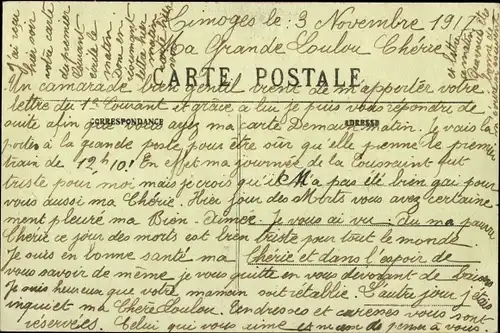 Limoges le 3 Novembre 1917
Ma Grande Loulou Chérie
CARTE POSTALE
Un camarade bien gentil vient de m'apporter votre
lettre du 1er Courant et grâce a lui je puis vous répondre de
suite afin que vous ayez ma carte Demain matin. Je vais la
CORRESPONDANCE
ADRESSE
porter à la grande poste pour être sur qu'elle prenne le premier
train de 12h10! En effet ma journée de la Toussaint fut
triste pour moi mais je crois qu'il M'a pas été bien gai pour
vous aussi ma Chérie. Hier jour des Morts vous avez certaine-
ment pleuré ma Bien-Aimée Je vous ai vu. Tu ma pauvre
Chérie ce jour des morts est bien triste pour tout le monde
Je suis en bonne santé ma Chérie et dans l'espoir de
vous savoir de même je vous quitte en vous dévorant de baisers
Je suis heureux que votre maman soit rétablie. L'autre jour j'étais
inquiet ma Chère Loulou. Tendresses et caresses vous sont
reservées. Celui qui vous aime et ne pense à vous
J'ai reçu
hier soir
votre carte
de premier
Courant
matin
et lettre